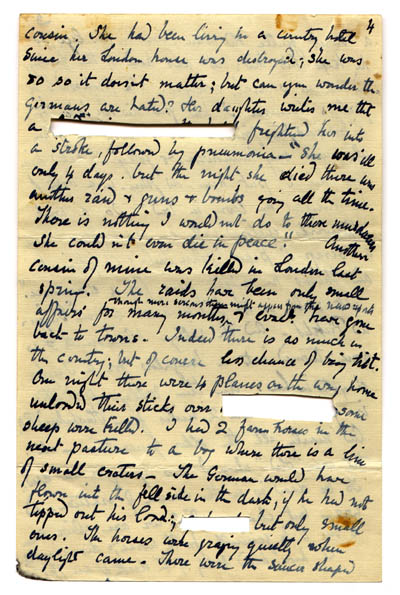 4
cousin. She had been living in a country hotel
since her London house was destroyed; she was
80 so it doesn't matter; but can you wonder the
Germans are hated? Her daughter writes me that
a frightened her into
a stroke, followed by pneumonia — "She was ill
only 4 days. but the night she died there was
another raid & guns & bombs going all the time.
There is nothing I would not do to those murderers
She could n't even die in peace" Another
cousin of mine was killed in London last
spring. The raids have been only small
affairs though more serious than might appear from the news reports
for many months, & evac. have gone
back to towns. Indeed there is as much in
the country; but of course less chance of being hit.
One night there were 4 planes on the way home
unloaded their sticks over some
sheep were killed. I had 2 farm horses in the
next pasture to a boy where there is a line
of small craters — The German would have
flown into the fell side in the dark, if he had not
tipped out his load; but only small
ones. The horses were grazing quietly when
daylight came. There were the saucer shaped